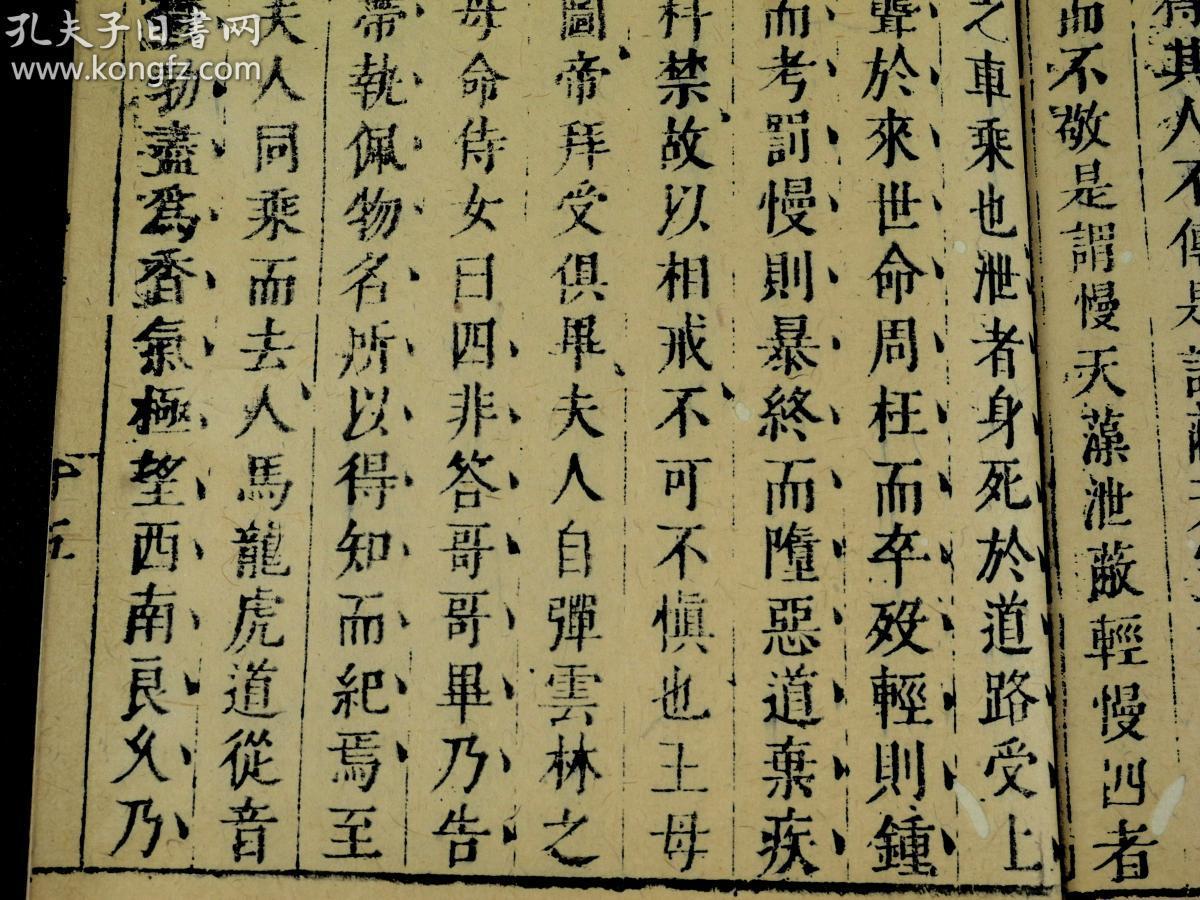 孔夫子旧书网
www.kongfz.com
其人不傳是
而不敬是謂慢天藻泄蔽輕慢四者
之車乘也泄者身死於道路受上
聾於來世命周枉而卒歿輕則鍾
而考罰慢則暴終而墮惡道棄疾
科禁故以相戒不可不愼也王母
圖帝拜受俱畢夫人自彈雲林之
母命侍女曰四非答哥哥畢乃告
帶執佩物名所以得知而紀焉至
夫人同乘而去人馬龍虎道從音
物盡爲香氣極望西南良久乃